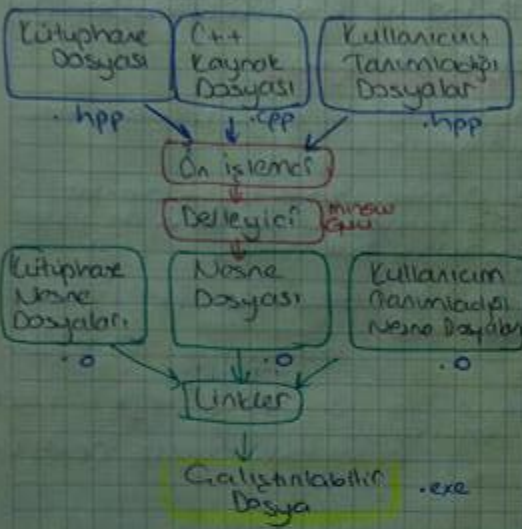 Kütüphane
Dosyası
.hpp
C++
Kaynak
Dosyası
.cpp
Kullanıcını
Tanımladığı
Dosyalar
.hpp
Ön işlemci
Derleyici
MinGW
GNU
Kütüphane
Nesne
Dosyaları
.o
Nesne
Dosyası
.o
Kullanıcım
Tanımladığı
Nesne Dosyaları
.o
Linkler
Çalıştırılabilir
Dosya
.exe